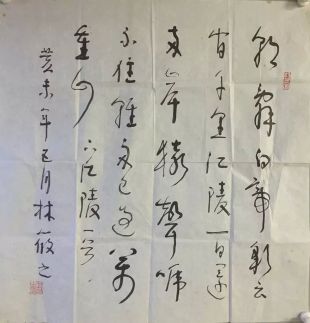 朝辭白帝彩云
间千里江陵一日還
两岸猿聲啼
不住轻舟已过萬
重山 下江陵一首
癸未年五月林筱之